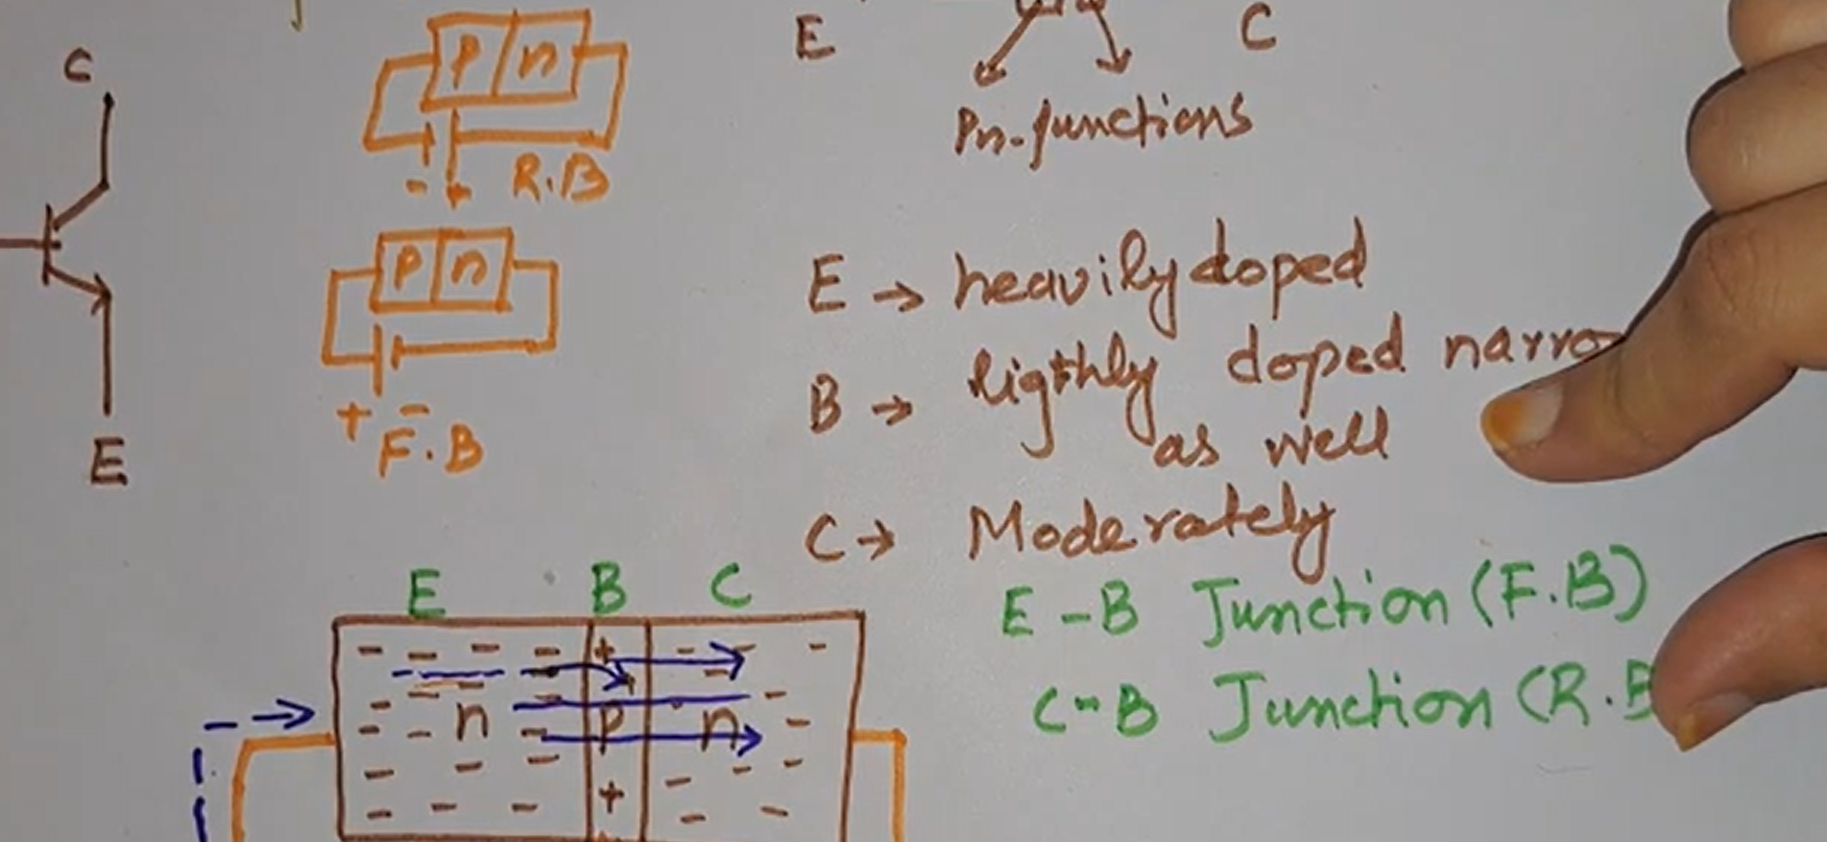 C
P n
- + R.B
E C
Pn-junctions
P n
+ - F.B
E
E → heavily doped
B → ligthly doped narro
as well
C → Moderately
E B C
E-B Junction (F.B)
C-B Junction (R.B
n P n